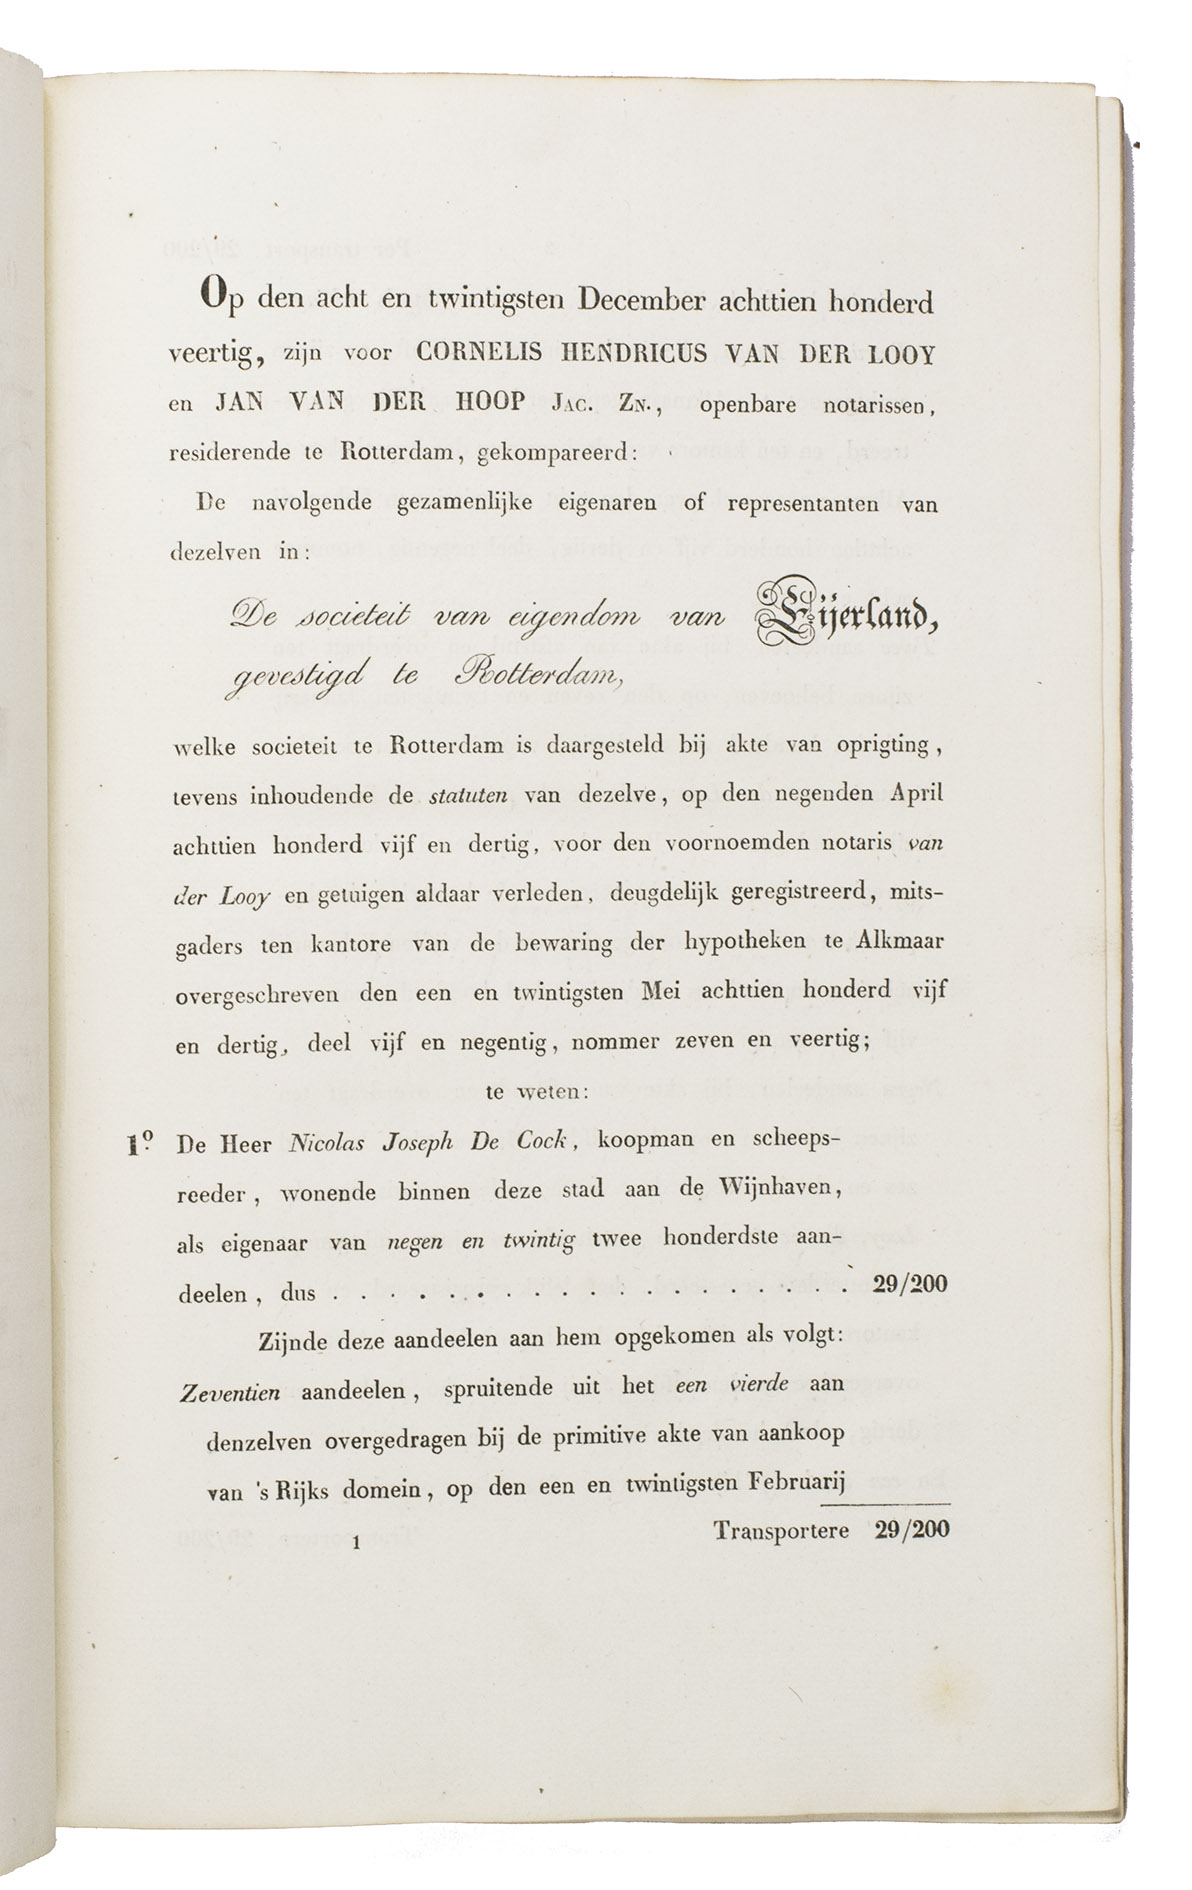 Op den acht en twintigsten December achttien honderd
veertig, zijn voor CORNELIS HENDRICUS VAN DER LOOY
en JAN VAN DER HOOP JAC. ZN., openbare notarissen,
residerende te Rotterdam, gekompareerd:
De navolgende gezamenlijke eigenaren of representanten van
dezelven in:
De societeit van eigendom van Eijerland,
gevestigd te Rotterdam,
welke societeit te Rotterdam is daargesteld bij akte van oprigting,
tevens inhoudende de statuten van dezelve, op den negenden April
achttien honderd vijf en dertig, voor den voornoemden notaris van
der Looy en getuigen aldaar verleden, deugdelijk geregistreerd, mits-
gaders ten kantore van de bewaring der hypotheken te Alkmaar
overgeschreven den een en twintigsten Mei achttien honderd vijf
en dertig, deel vijf en negentig, nommer zeven en veertig;
te weten:
1º. De Heer Nicolas Joseph De Cock, koopman en scheeps-
reeder, wonende binnen deze stad aan de Wijnhaven,
als eigenaar van negen en twintig twee honderdste aan-
deelen, dus . . . . . . . . . . . . . . . . . . . 29/200
Zijnde deze aandeelen aan hem opgekomen als volgt:
Zeventien aandeelen, spruitende uit het een vierde aan
denzelven overgedragen bij de primitive akte van aankoop
van 's Rijks domein, op den een en twintigsten Februarij
1 Transportere 29/200